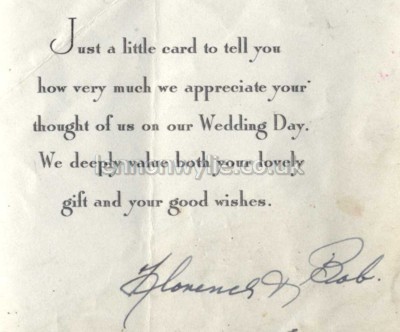 Just a little card to tell you
how very much we appreciate your
thought of us on our Wedding Day.
We deeply value both your lovely
lennonwylie.co.uk
gift and your good wishes.
Florence & Bob.